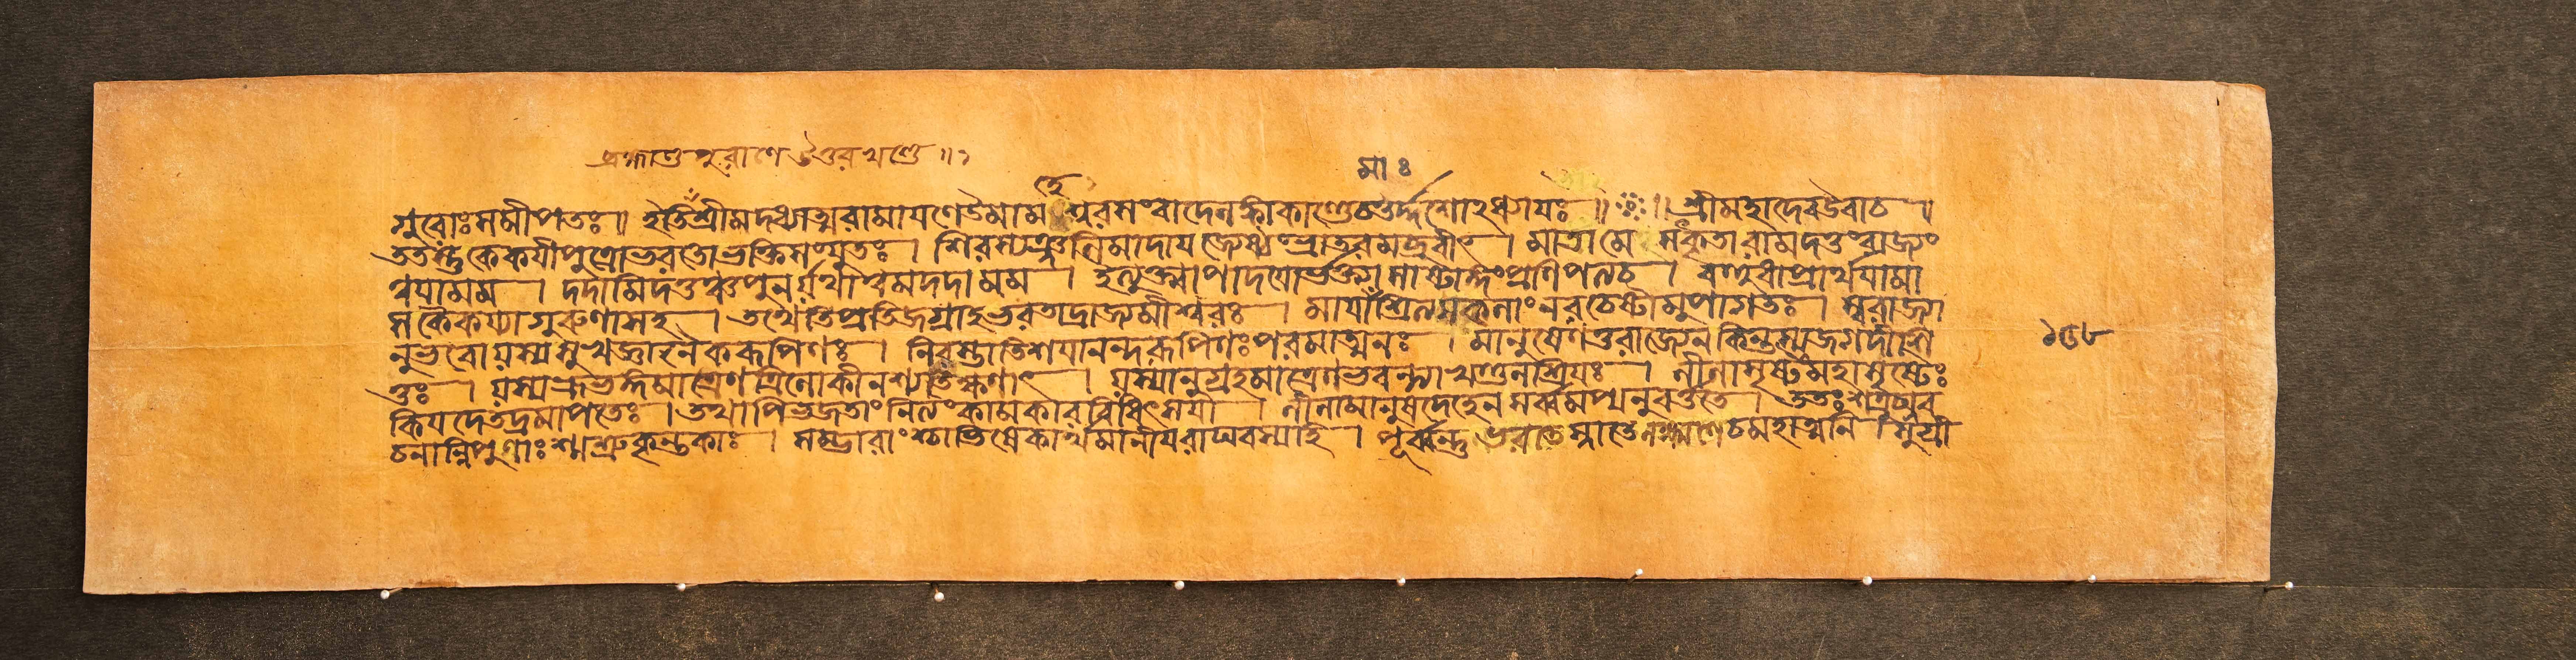 ব্রহ্মাণ্ডপুরাণে উত্তরখণ্ডে ॥
মা ঃ
গুরোঃ সমীপতঃ ॥ ইতি শ্রীমদধ্যাত্মরামায়ণে উমামহেশ্বরসংবাদে লঙ্কাকাণ্ডে চতুর্দ্দশোঽধ্যায়ঃ ॥ ॥ শ্রীমহাদেব উবাচ ॥
ততস্তু কেকয়ীপুত্রো ভরতো ভক্তিসংযুতঃ । শিরস্যঞ্জলিমাদায় জ্যেষ্ঠং ভ্রাতরমব্রবীৎ । মাতা মে সৎকৃতা রাম দত্তং রাজ্যং
ত্বয়া মম । দদামি তত্তুভ্যং পুনর্যথা ত্বমদদা মম । ইত্যুক্ত্বা পাদয়োর্ভক্ত্যা সাষ্টাঙ্গং প্রণিপত্য চ । বহুধা প্রার্থয়ামা
স কৈকয্যা গুরুণা সহ । তথেতি প্রতিজগ্রাহ ভরতাদ্রাজ্যমীশ্বরঃ । মায়ামাশ্রিত্য সকলাং নরচেষ্টামুপাগতঃ । স্বারাজ্যা
নুভবো যস্য সুখজ্ঞানৈকরূপিণঃ । নিরস্তাতিশয়ানন্দরূপিণঃ পরমাত্মনঃ । মানুষেণ তু রাজ্যেন কিন্তস্য জগদীশি
তুঃ । যস্য ভ্রূভঙ্গমাত্রেণ ত্রিলোকী নশ্যতি ক্ষণাৎ । যস্যানুগ্রহমাত্রেণ ভবন্ত্যাখণ্ডলশ্রিয়ঃ । লীলাসৃষ্টমহাসৃষ্টেঃ
কিয়দেতদ্রমাপতেঃ । তথাপি ভজতাং নিত্যং কামকারবিধিৎসয়া । লীলামানুষদেহেন সর্ব্বমপ্যনুবর্ত্ততে । ততঃ শত্রুঘ্নব
চনান্নিপুণাঃ শ্মশ্রুকৃন্তকাঃ । সম্ভারাংশ্চাভিষেকার্থমানীয় রাঘবস্য হি । পূর্ব্বন্তু ভরতে স্নাতে লক্ষ্মণে চ মহাত্মনি । সুগ্রী